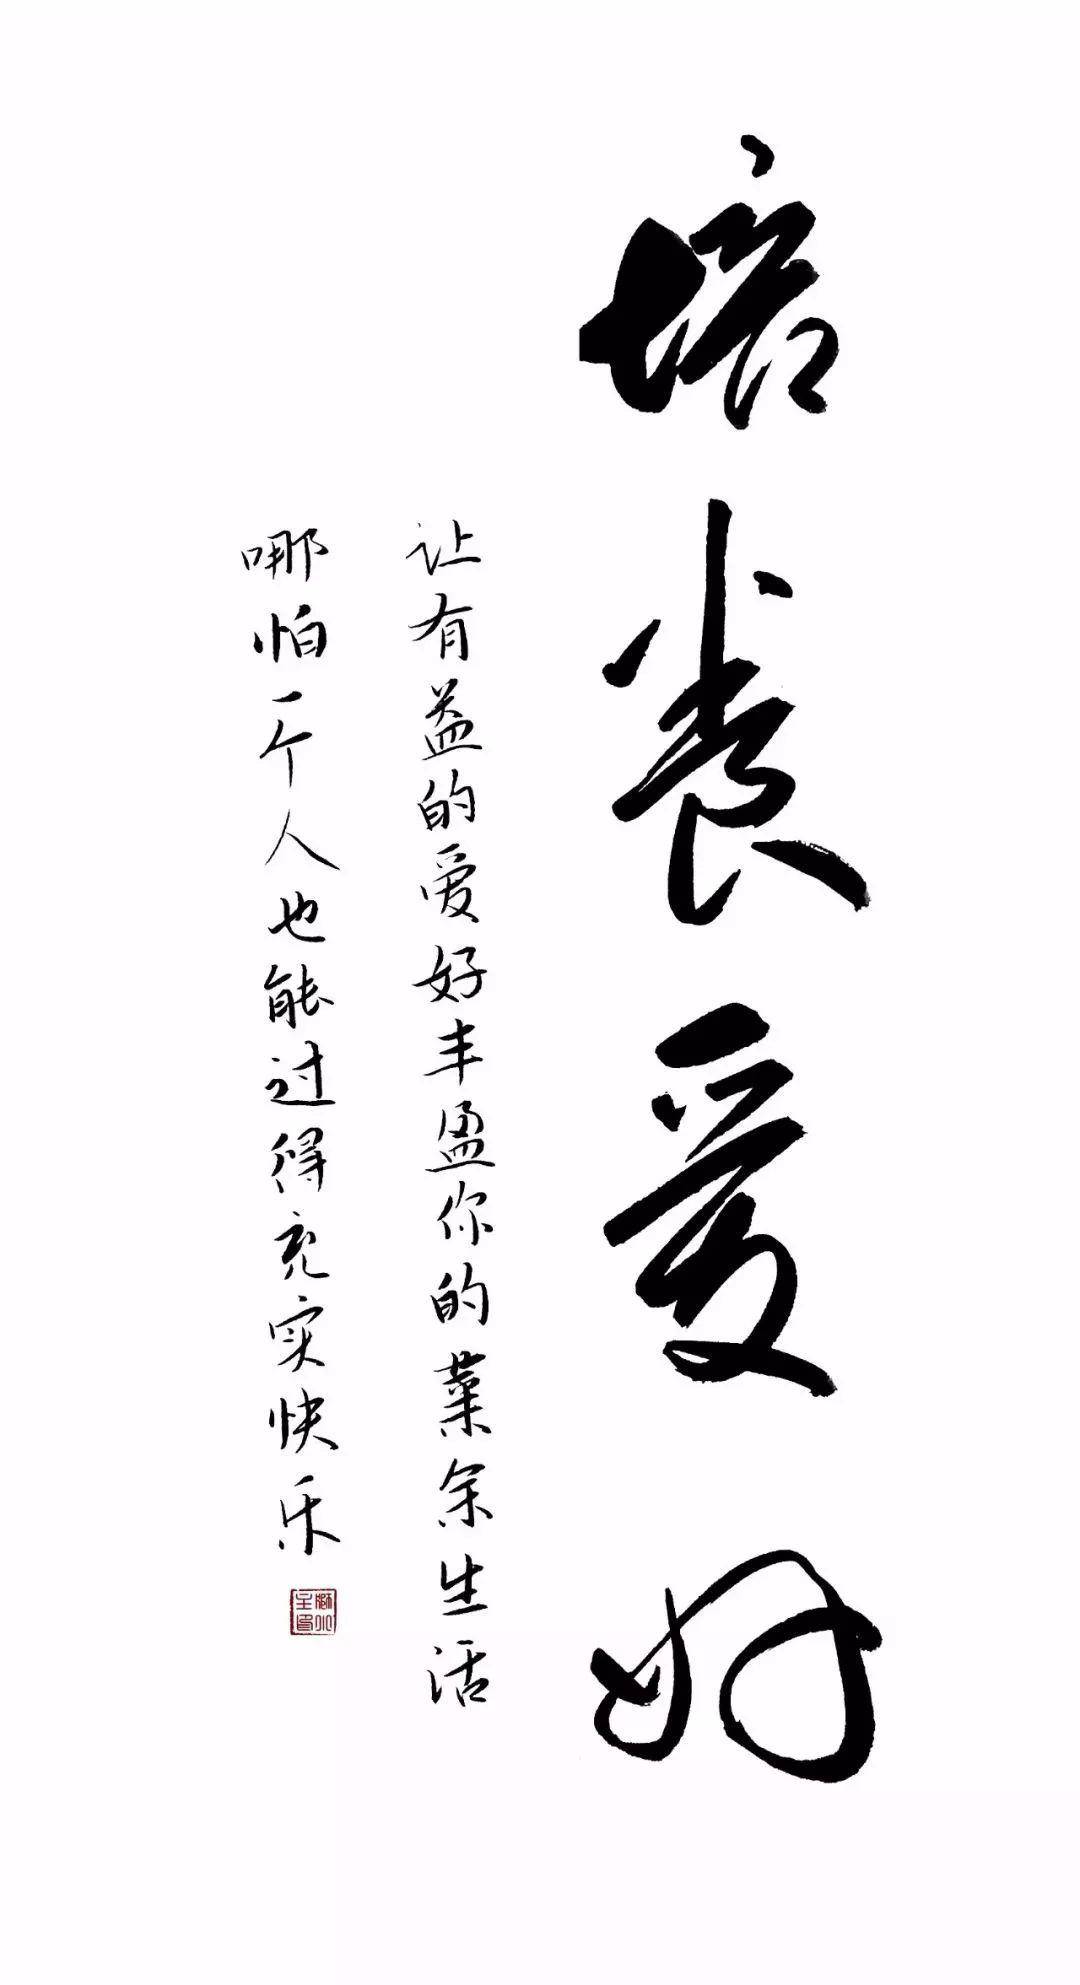 培养爱好
让有益的爱好丰盈你的业余生活
哪怕一个人也能过得充实快乐